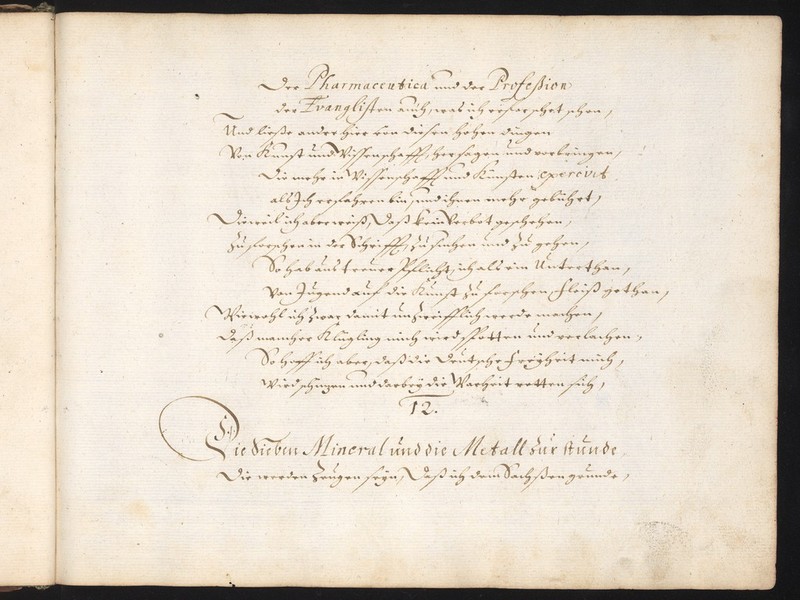 Der Pharmaceutica und der Profession
der Evanglisten auch, was ich erforschet schon,
Und ließe ander hier von diesen hohen dingen
Von Kunst und Wissenschafft, hersagen und vorbringen,
Die mehr in Wissenschafft und Künsten exercirt
als Ich erfahren bin, und ihnen mehr gebührt,
Dieweil ich aber weiß, Daß kein Verbot geschehen,
Zu forschen in der Schrifft, Zu suchen und Zu gehen,
So hab aus treuer Pflicht, ich als ein Unterthan,
Von Jugend auf die Kunst Zu forschen Fleiß gethan,
Wiewohl ich Zwar damit unZweifflich werde machen,
Daß mancher Klügling mich wird spotten und verlachen,
So hoff ich aber, daß die Deutsche Freyheit mich,
Wird schüzen und darbey die Warheit retten sich,
12.
Die Sieben Mineral und die Metall Zur stunde
Die werden Zeugen seyn, Daß ich dem Sachßen grunde,